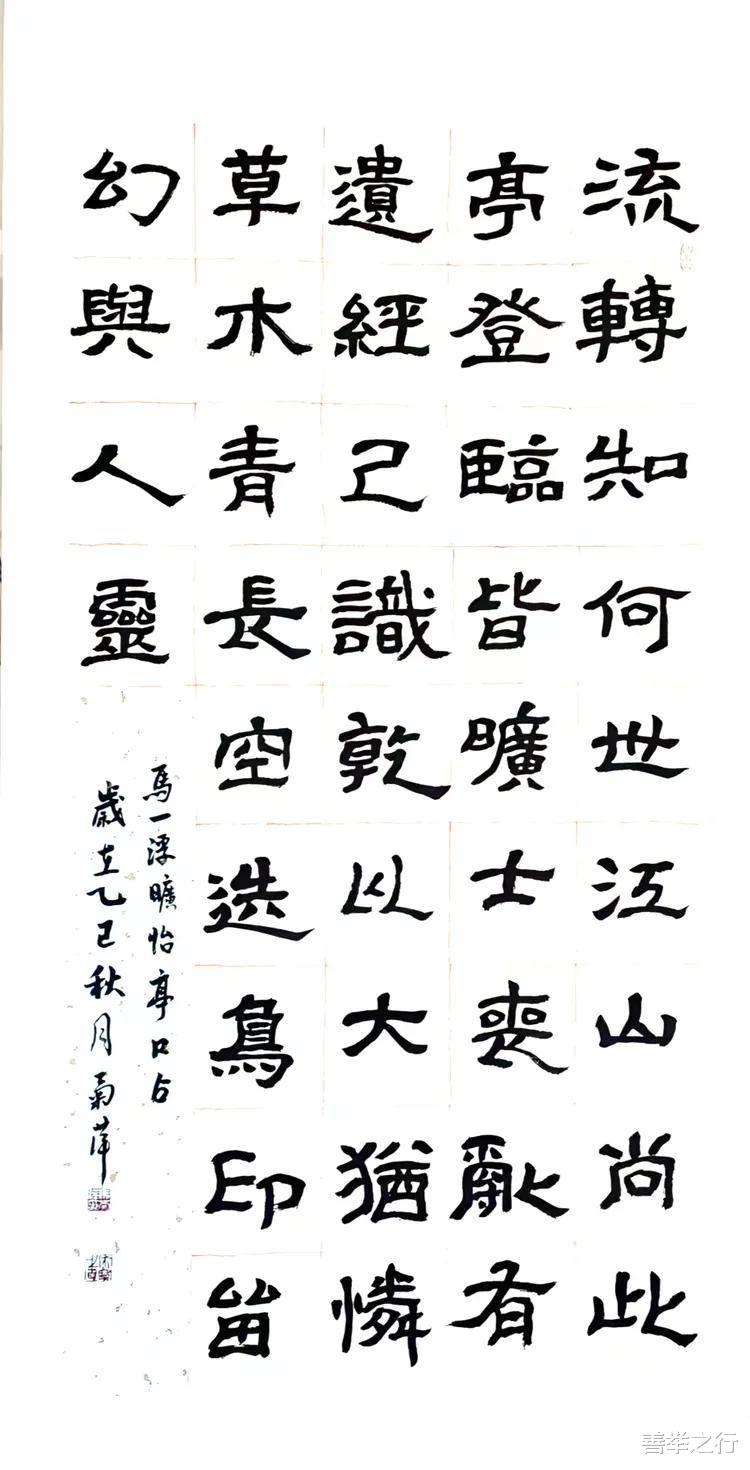 流轉知何世江山尚此
亭登臨皆曠士喪亂有
遺經已識乾坤大猶憐
草木青長空送鳥印留
幻與人靈
馬一浮曠怡亭口占
歲在乙巳秋月菊
善举之行